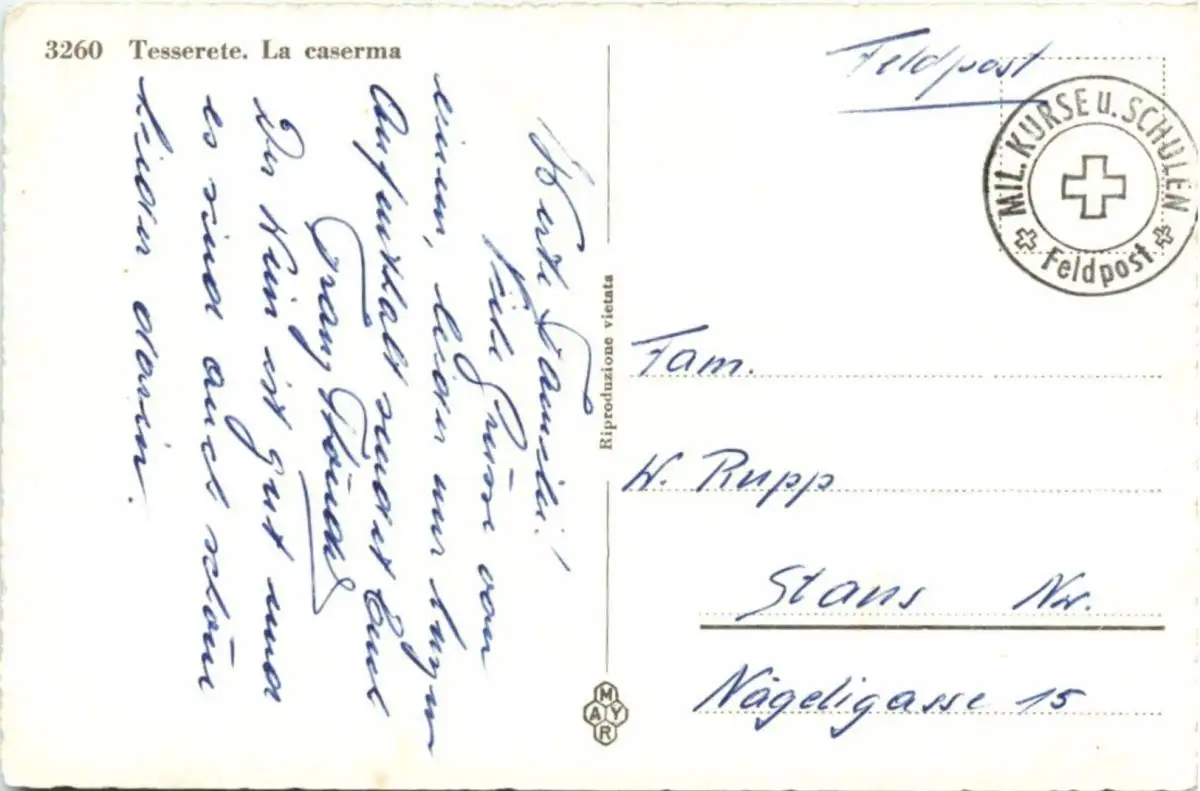 3260 Tesserete. La caserma
Werte Familie!
Viele Grüsse von
einem, leider nur kurzen
Aufenthalt sendet Euch
Franz
Der Wein ist gut und
es sind auch schöne
Kleider darin.
Riproduzione vietata
MAYR
Feldpost
MIL. KURSE U. SCHULEN
Feldpost
Fam.
W. Rupp
Stans Nw.
Nägeligasse 15